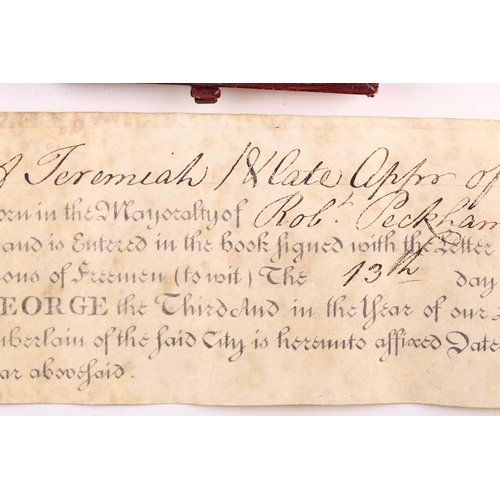 Jeremiah late Appr of
orn in the Mayoralty of Rob.t Peckham
and is Entered in the book signed with the Letter
ons of Freemen (to wit) The 13th day
EORGE the Third And in the Year of our
mberlain of the said City is hereunto affixed Date
ar abovesaid.